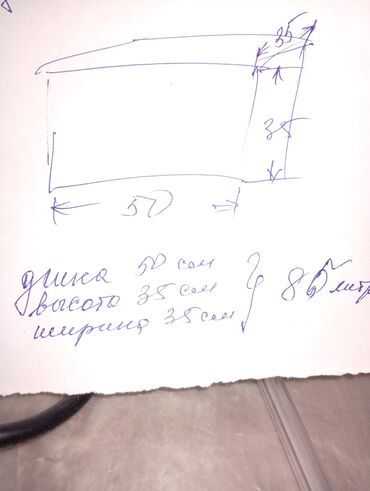 35
35
50
длина 50 сам
высота 35 сам
ширина 35 сам
85 литр